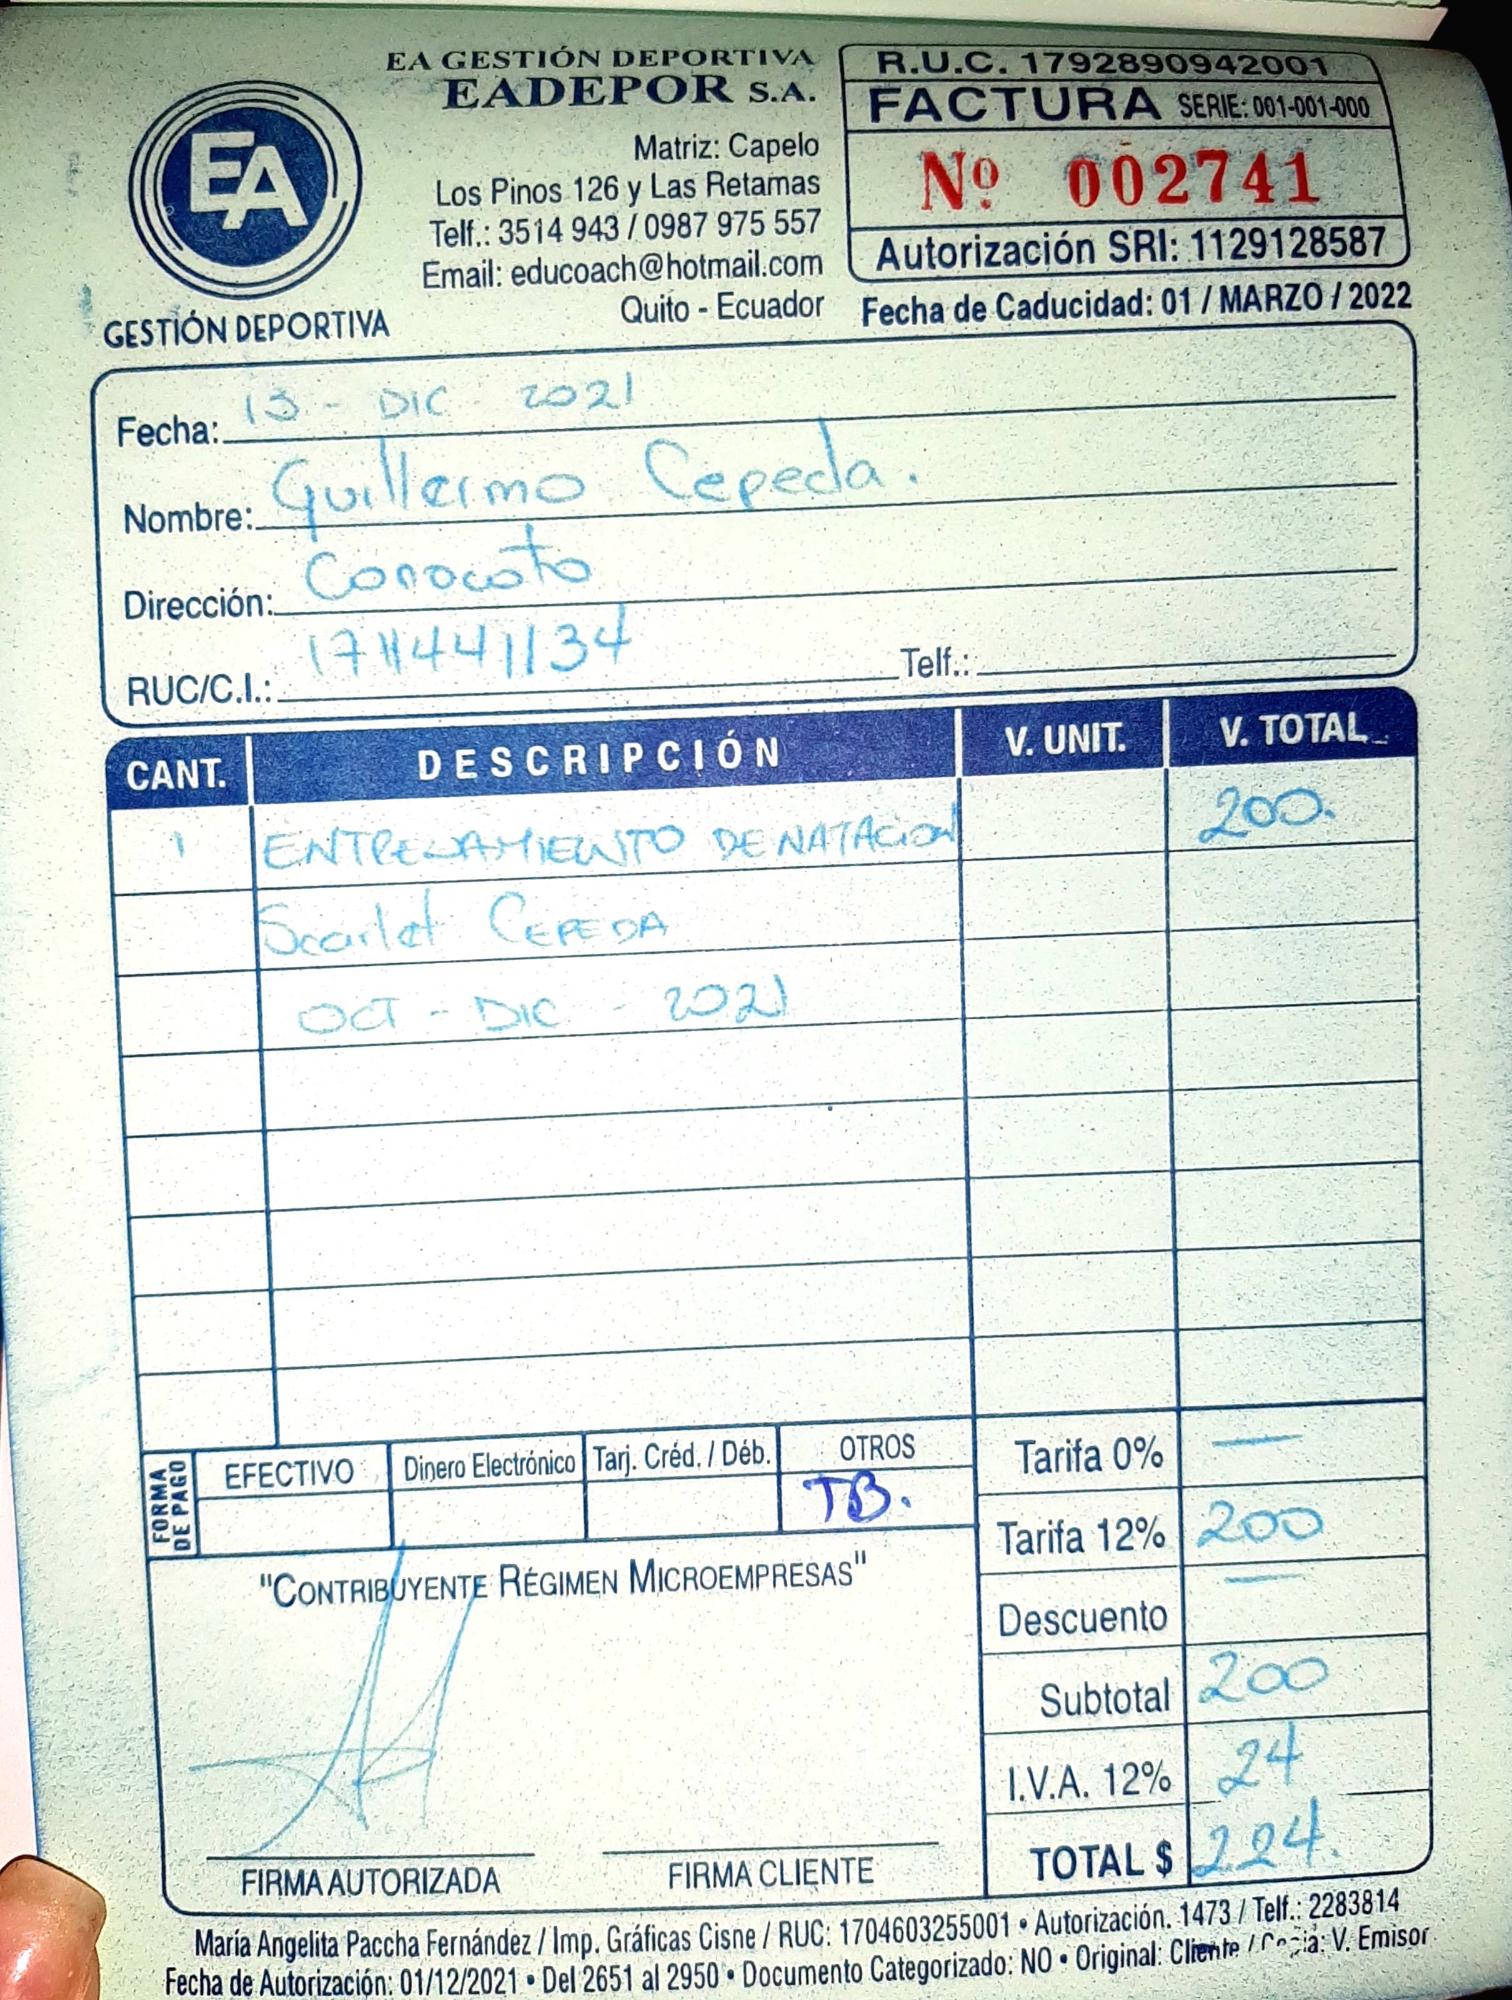 EA GESTIÓN DEPORTIVA
EADEPOR S.A.
EA
GESTIÓN DEPORTIVA
Matriz: Capelo
Los Pinos 126 y Las Retamas
Telf.: 3514 943 / 0987 975 557
Email: educoach@hotmail.com
Quito - Ecuador
R.U.C. 1792890942001
FACTURA SERIE: 001-001-000
Nº 002741
Autorización SRI: 1129128587
Fecha de Caducidad: 01 / MARZO / 2022
Fecha: 13 - DIC - 2021
Nombre: Guillermo Cepeda.
Dirección: Conocoto
RUC/C.I.: 1711441134 Telf.:
CANT. DESCRIPCIÓN V. UNIT. V. TOTAL
1 ENTRENAMIENTO DE NATACION 200.
Scarlet CEPEDA
OCT - DIC - 2021
FORMA DE PAGO
EFECTIVO Dinero Electrónico Tarj. Créd. / Déb. OTROS
TB.
Tarifa 0% —
Tarifa 12% 200
Descuento —
Subtotal 200
I.V.A. 12% 24
TOTAL $ 224.
"CONTRIBUYENTE RÉGIMEN MICROEMPRESAS"
FIRMA AUTORIZADA FIRMA CLIENTE
María Angelita Paccha Fernández / Imp. Gráficas Cisne / RUC: 1704603255001 • Autorización. 1473 / Telf.: 2283814
Fecha de Autorización: 01/12/2021 • Del 2651 al 2950 • Documento Categorizado: NO • Original: Cliente / Copia: V. Emisor